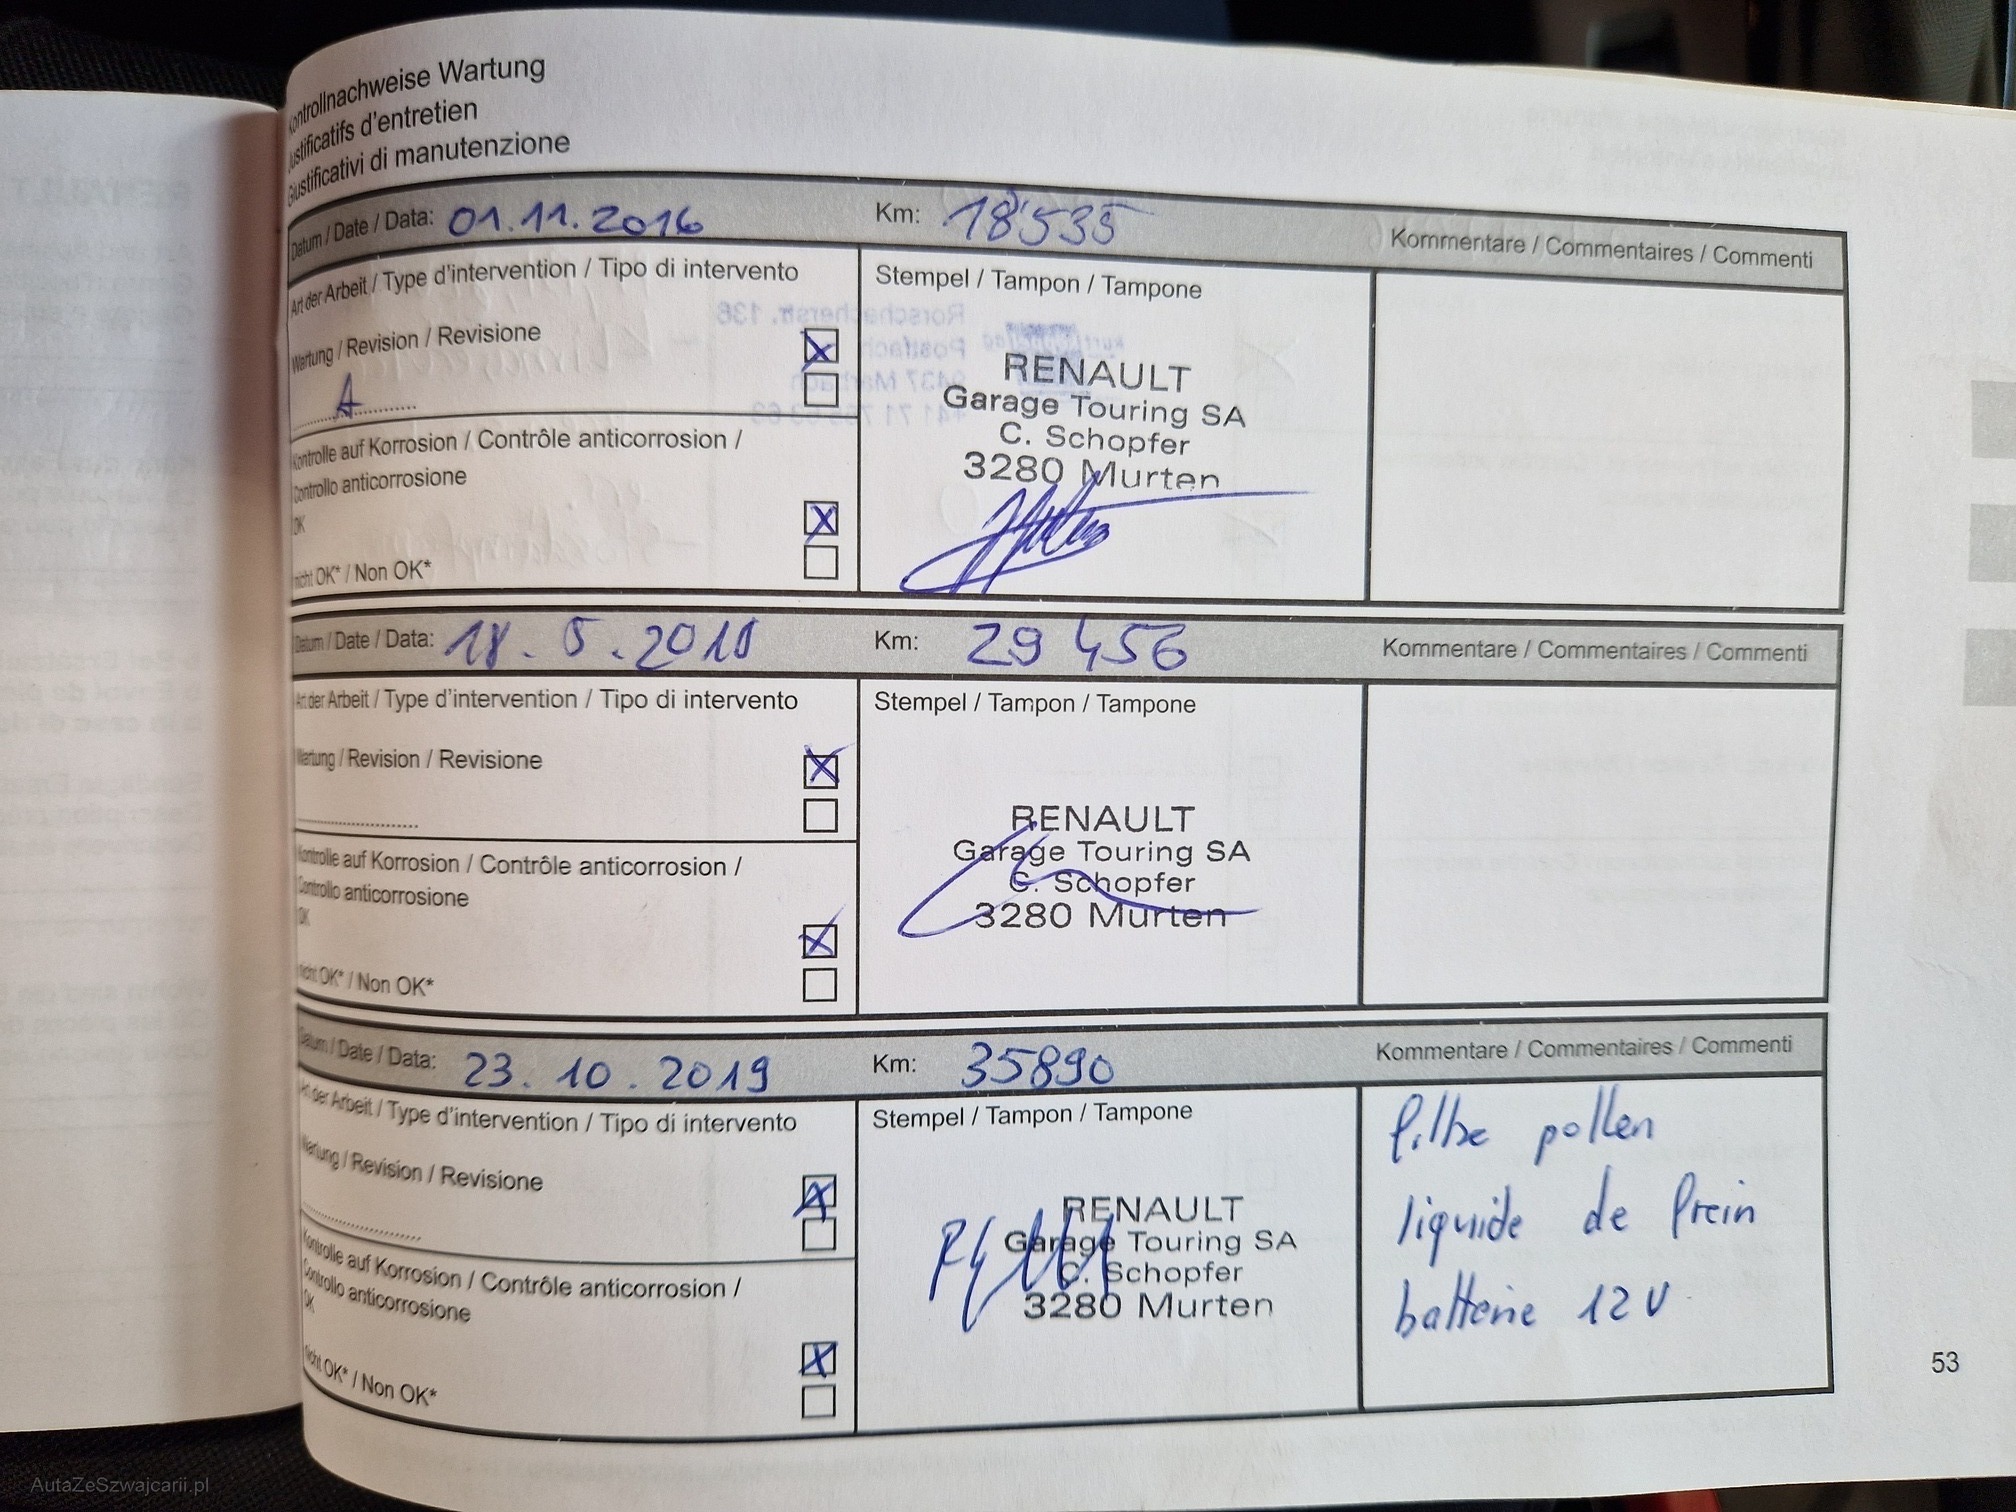 Kontrollnachweise Wartung
Justificatifs d'entretien
Giustificativi di manutenzione
Datum / Date / Data: 01.11.2016 Km: 18'535 Kommentare / Commentaires / Commenti
Art der Arbeit / Type d'intervention / Tipo di intervento
Stempel / Tampon / Tampone
Wartung / Revision / Revisione
A
RENAULT
Garage Touring SA
C. Schopfer
3280 Murten
Kontrolle auf Korrosion / Contrôle anticorrosion /
Controllo anticorrosione
OK
nicht OK* / Non OK*
Datum / Date / Data: 18.5.2018 Km: 29 456 Kommentare / Commentaires / Commenti
Art der Arbeit / Type d'intervention / Tipo di intervento
Stempel / Tampon / Tampone
Wartung / Revision / Revisione
RENAULT
Garage Touring SA
C. Schopfer
3280 Murten
Kontrolle auf Korrosion / Contrôle anticorrosion /
Controllo anticorrosione
OK
nicht OK* / Non OK*
Datum / Date / Data: 23.10.2019 Km: 35890 Kommentare / Commentaires / Commenti
Art der Arbeit / Type d'intervention / Tipo di intervento
Stempel / Tampon / Tampone
Wartung / Revision / Revisione
RENAULT
Garage Touring SA
C. Schopfer
3280 Murten
filtre pollen
liquide de frein
batterie 12V
Kontrolle auf Korrosion / Contrôle anticorrosion /
Controllo anticorrosione
OK
nicht OK* / Non OK*
53
AutaZeSzwajcarii.pl